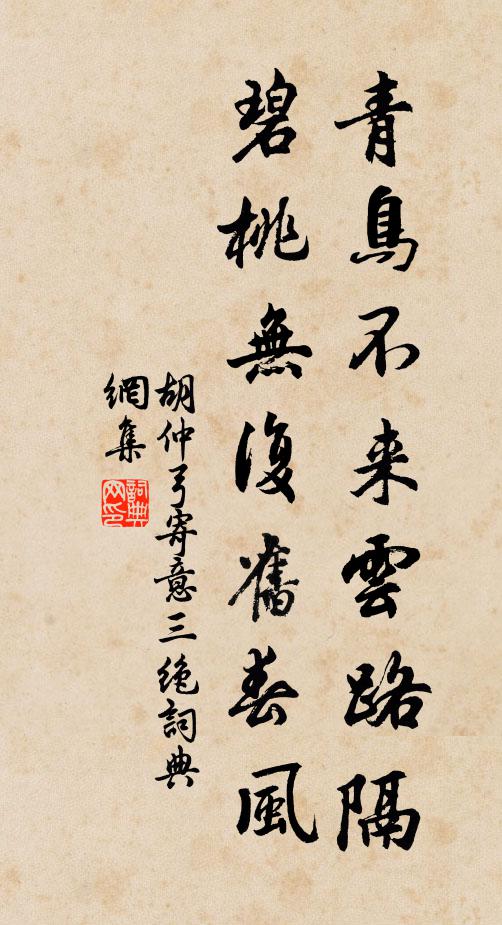 青鳥不来雲路隔
碧桃無復舊春風
胡仲弓寄意三絶詞典
網集
詞典網印